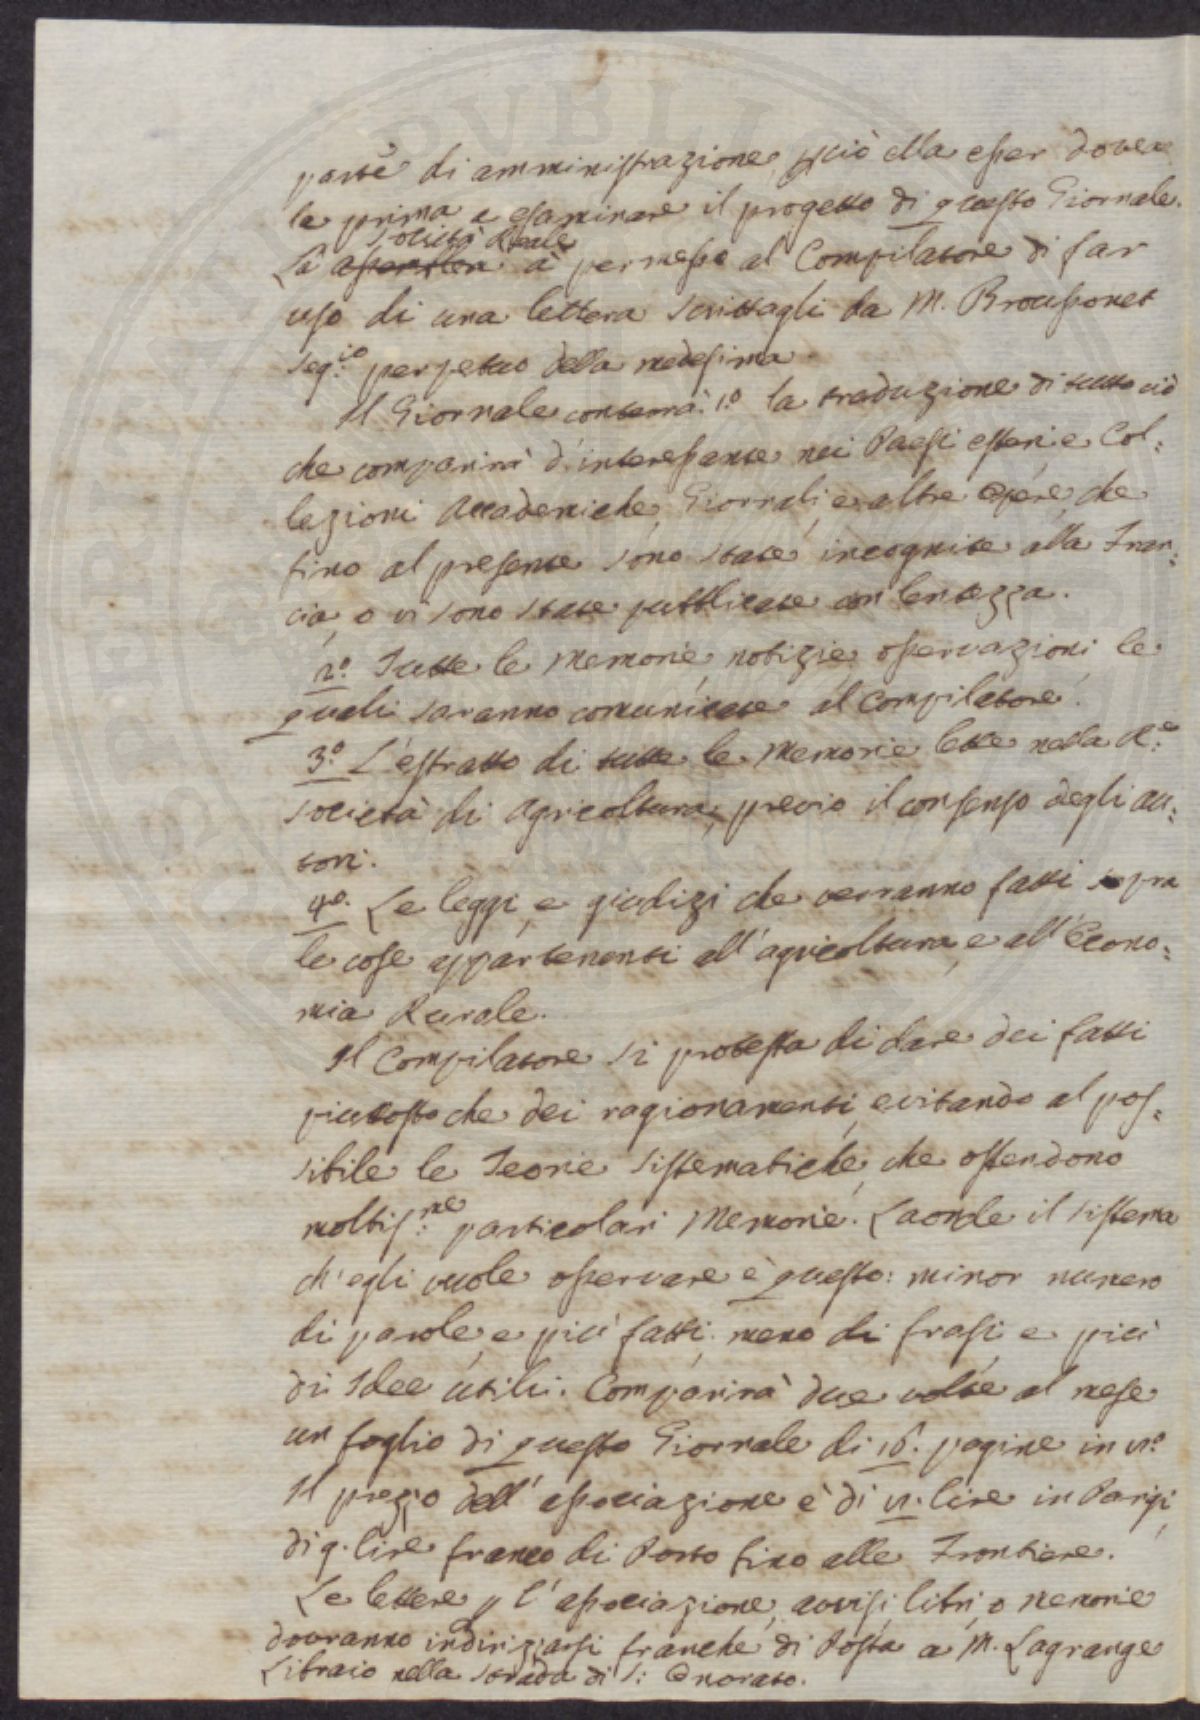 parte di amministrazione, pciò ella esser dovea
la prima a esaminare il progetto di questo Giornale.
Società Reale
La à permesso al Compilatore di far
uso di una lettera scrittagli da M. Broussonet
Seg.io perpetuo della medesima.
Il Giornale conterrà: 1.o la traduzione di tutto ciò
che comparirà d'interessante nei Paesi esteri e Col:
lezioni Accademiche, Giornali, e altre Opere, che
fino al presente sono state incognite alla Fran:
cia, o vi sono state pubblicate con lentezza.
2.o Tutte le Memorie, notizie, osservazioni le
quali saranno comunicate al Compilatore.
3.o L'estratto di tutte le Memorie lette nella R.e
Società di Agricoltura, previo il consenso degli au:
tori.
4.o Le leggi, e giudizi che verranno fatti sopra
le cose appartenenti all'agricoltura, e all'Econo:
mia Rurale.
Il Compilatore si protesta di dare dei fatti
piuttosto che dei ragionamenti, evitando al pos:
sibile le Teorie sistematiche, che
moltis.me particolari Memorie. Laonde il sistema
ch'egli vuole osservare è questo: minor numero
di parole, e più fatti; meno di frasi, e più
di Idee utili. Comparirà due volte al mese
un foglio di questo Giornale di 16. pagine in
Il prezzo dell'associazione è di lire in Parigi,
di 9. lire franco di Porto fino alle Frontiere.
Le lettere p l'associazione, avvisi, libri, o memorie
dovranno indirizzarsi franche di Posta a M. Lagrange
Libraio nella Strada di S: Onorato.